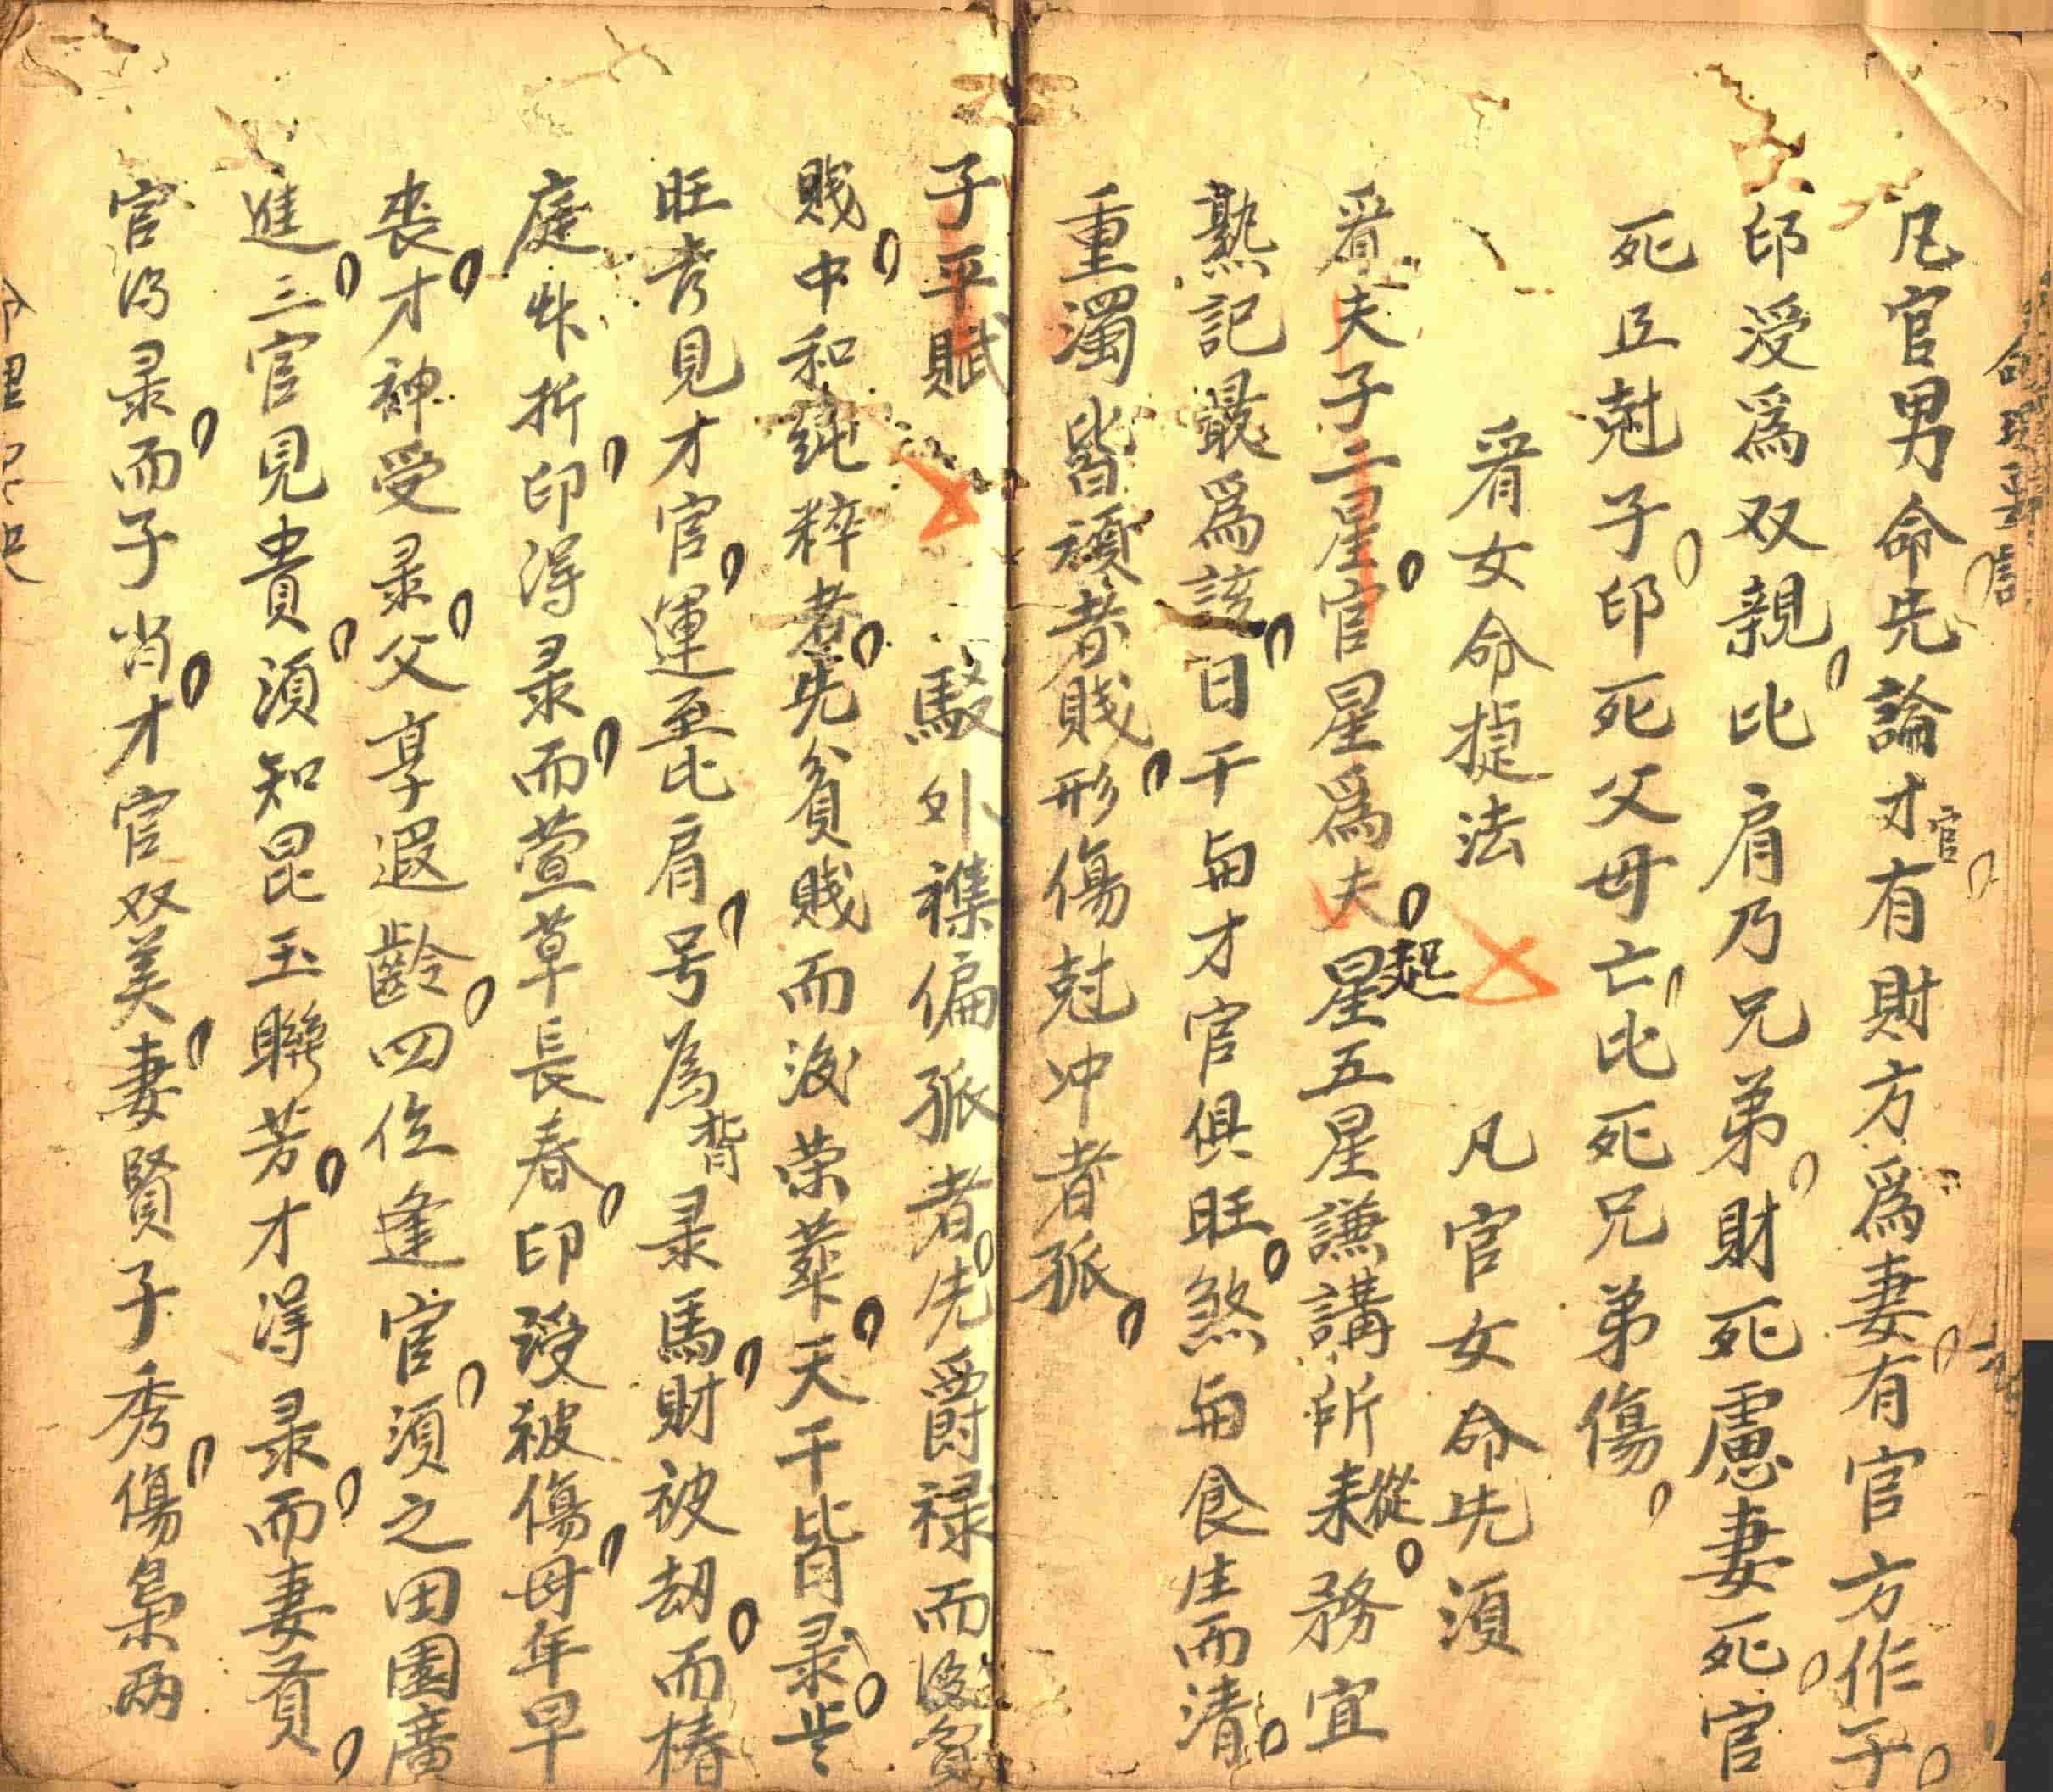 凡官男命先論才官有財方爲妻有官方作子
印受爲双親比肩乃兄弟財死慮妻死官
死丘尅子印死父母亡比死兄弟傷
看女命捷法 凡官女命先須
看夫子二星官星爲夫夫星起五星謙講所耒從務宜
熟記最爲該日干與才官俱旺煞與食生而清
重濁皆須者賤形傷尅冲者孤
子平賦 駁外襍偏孤者先爵禄而後貧
賤中和純粹者先貧賤而後荣華天干皆录㱏
旺考見才官運至比肩号為背录馬財被刼而椿
庭先折印得录而萱草長春印受被傷母年早
丧才神受录父享遐齡四位逢官須之田園廣
進三官見貴須知昆玉聯芳才得录而妻賢
官得录而子肖才官双美妻賢子秀傷梟两